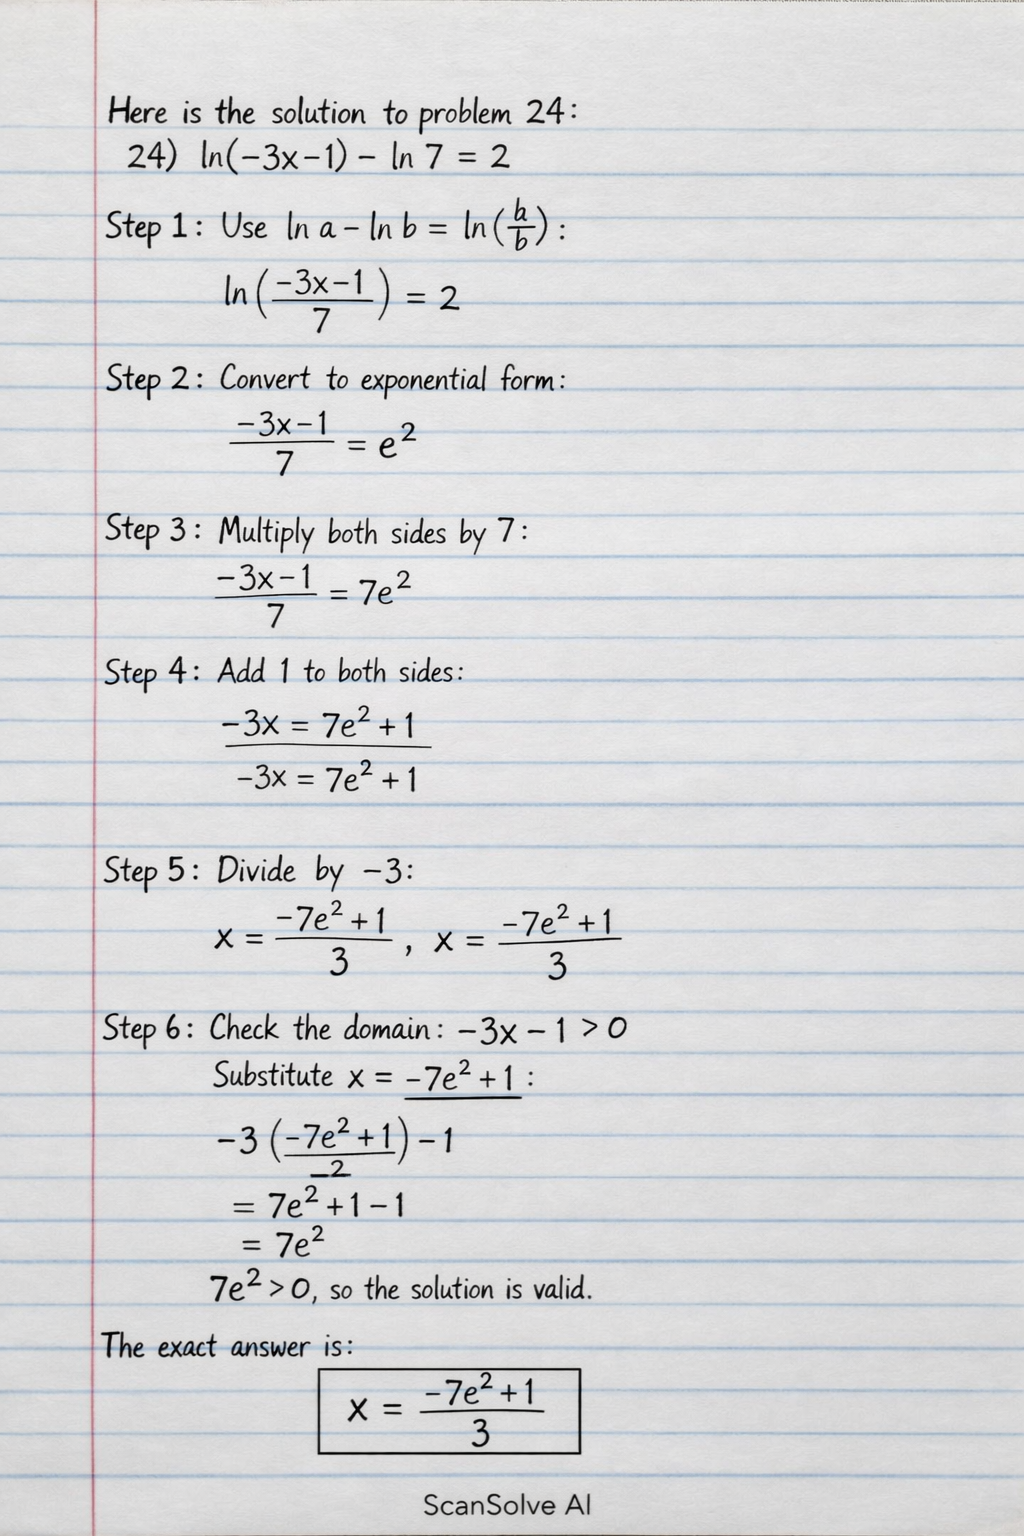 Here is the solution to problem 24:
24) ln(−3x−1) − ln 7 = 2
Step 1: Use ln a − ln b = ln(a/b):
ln((−3x−1)/7) = 2
Step 2: Convert to exponential form:
(−3x−1)/7 = e²
Step 3: Multiply both sides by 7:
(−3x−1)/7 = 7e²
Step 4: Add 1 to both sides:
−3x = 7e² + 1
−3x = 7e² + 1
Step 5: Divide by −3:
x = (−7e² + 1)/3 , x = (−7e² + 1)/3
Step 6: Check the domain: −3x − 1 > 0
Substitute x = −7e² + 1 :
−3 ((−7e² + 1)/−2) − 1
= 7e² + 1 − 1
= 7e²
7e² > 0, so the solution is valid.
The exact answer is:
x = (−7e² + 1)/3
ScanSolve AI